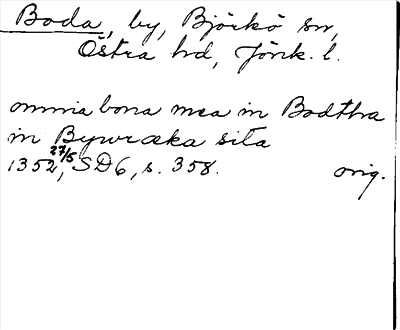 Boda, by, Björkö sn,
Östra hd, Jönk. l.
omnia bona mea in Bodthra
in Bywræka sita
1352 27/5, SD6, s. 358. orig.